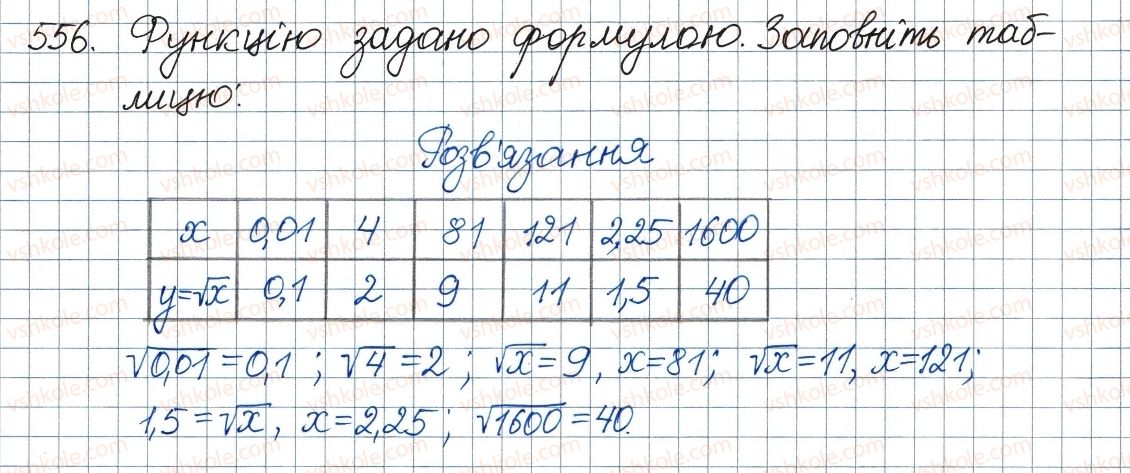 556. Функцію задано формулою. Заповніть таб-
лицю:
Розв'язання
x 0,01 4 81 121 2,25 1600
y=√x 0,1 2 9 11 1,5 40
√0,01 = 0,1 ; √4 = 2 ; √x = 9, x=81; √x = 11, x=121;
1,5 = √x, x = 2,25 ; √1600 = 40.